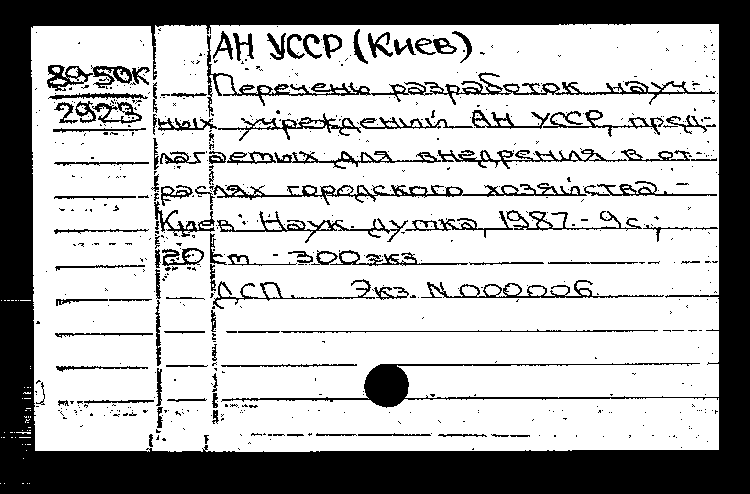 АН УССР (Киев).
89-50К
Перечень разработок науч-
2923
ных учреждений АН УССР, пред-
лагаемых для внедрения в от-
раслях городского хозяйства. -
Киев: Наук. думка, 1987. - 9 с.;
20 см - 300 экз
ДСП. Экз. N 000006.